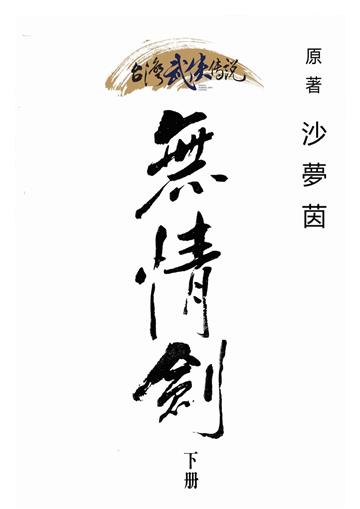 台灣武俠傳說
原著 沙夢茵
無情劍
下册